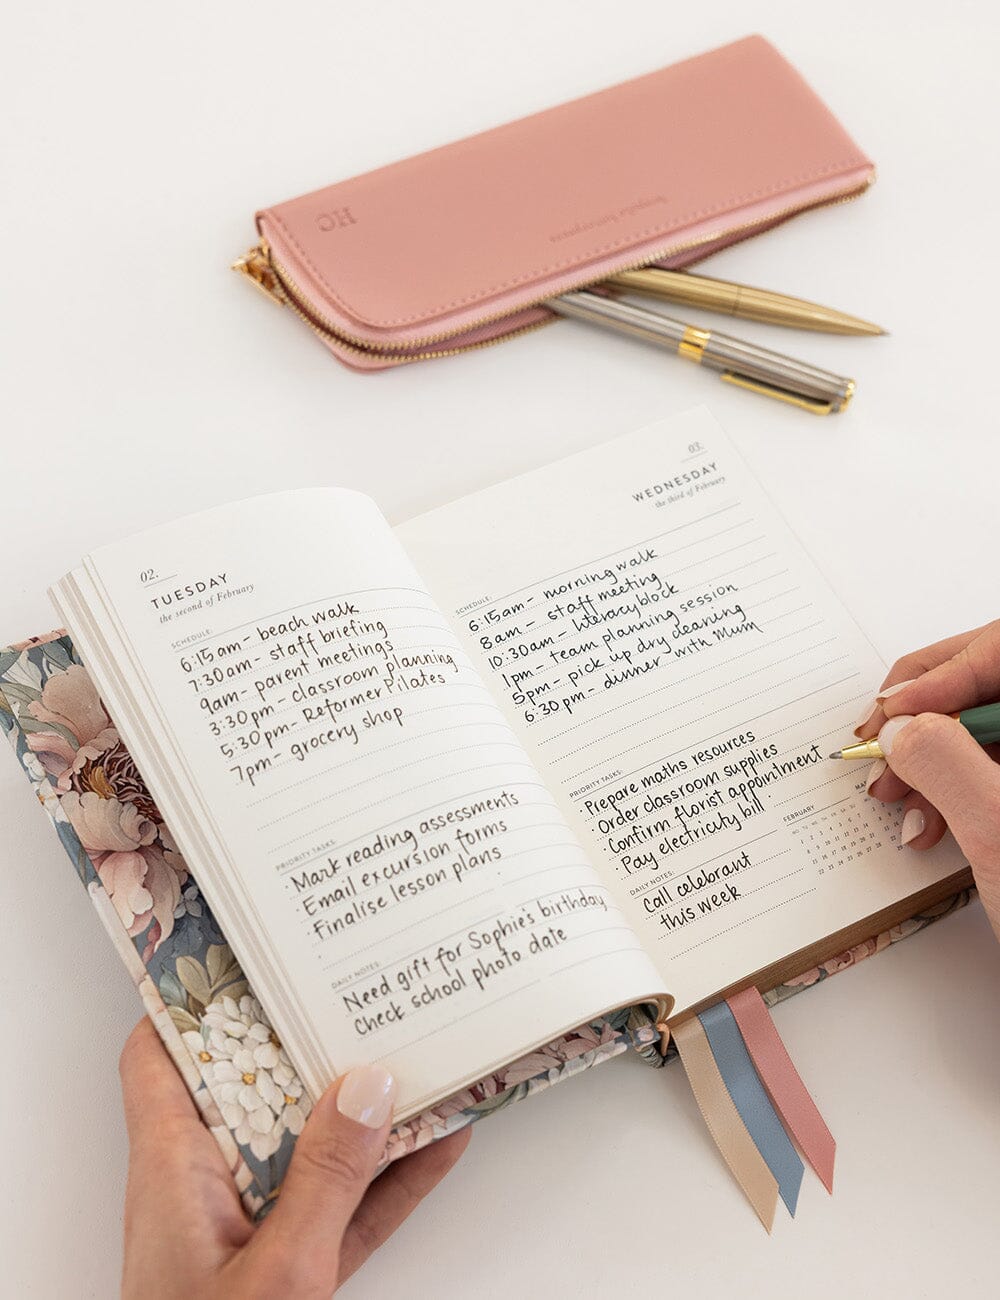 HC
02.
TUESDAY
the second of February
SCHEDULE:
6:15am - beach walk
7:30am - staff briefing
9am - parent meetings
3:30pm - classroom planning
5:30pm - Reformer Pilates
7pm - grocery shop
PRIORITY TASKS:
· Mark reading assessments
· Email excursion forms
· Finalise lesson plans
·
DAILY NOTES:
Need gift for Sophie's birthday
Check school photo date
03.
WEDNESDAY
the third of February
SCHEDULE:
6:15am - morning walk
8am - staff meeting
10:30am - literacy block
1pm - team planning session
5pm - pick up dry cleaning
6:30pm - dinner with Mum
PRIORITY TASKS:
· Prepare maths resources
· Order classroom supplies
· Confirm florist appointment
· Pay electricity bill
FEBRUARY
DAILY NOTES:
Call celebrant
this week